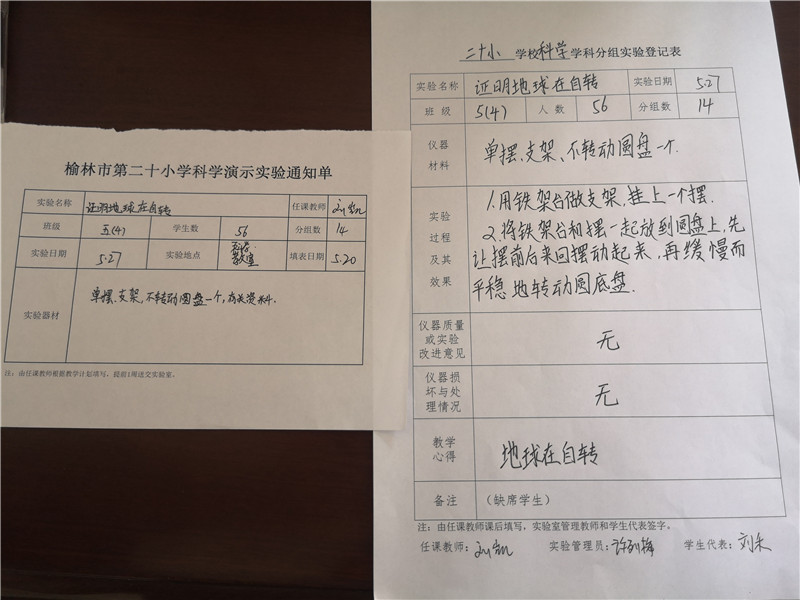 榆林市第二十小学科学演示实验通知单
实验名称 证明地球在自转 任课教师
班级 五(4) 学生数 56 分组数 14
实验日期 5.27 实验地点 科学教室 填表日期 5.20
实验器材 单摆、支架、不转动圆盘一个、有关资料.
注：由任课教师根据教学计划填写，提前1周送交实验室。
二十小 学校 科学 学科分组实验登记表
实验名称 证明地球在自转 实验日期 5.27
班 级 5(4) 人 数 56 分组数 14
仪器
材料
单摆、支架、不转动圆盘一个.
实验
过程
及其
效果
1.用铁架台做支架,挂上一个摆.
2.将铁架台和摆一起放到圆盘上,先
让摆前后来回摆动起来,再缓慢而
平稳地转动圆底盘.
仪器质量
或实验
改进意见
无
仪器损
坏与处
理情况
无
教学
心得
地球在自转
备注 （缺席学生）
注：由任课教师课后填写，实验室管理教师和学生代表签字。
任课教师： 实验管理员： 学生代表：